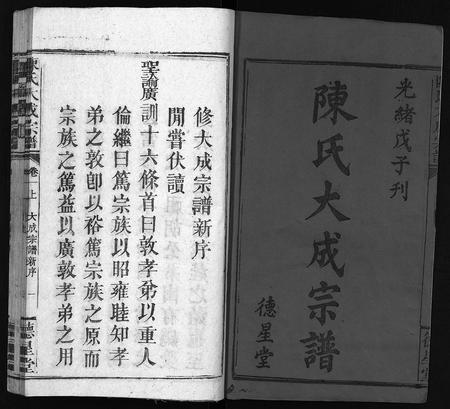 光緒戊子刊
陳氏大成宗譜
德星堂
修大成宗譜新序
閒嘗伏讀
聖諭廣訓十六條首曰敦孝弟以重人
倫繼曰篤宗族以昭雍睦知孝
弟之敦卽以裕篤宗族之原而
宗族之篤益以廣敦孝弟之用
陳氏大成宗譜
卷上
大成宗譜新序
德星堂